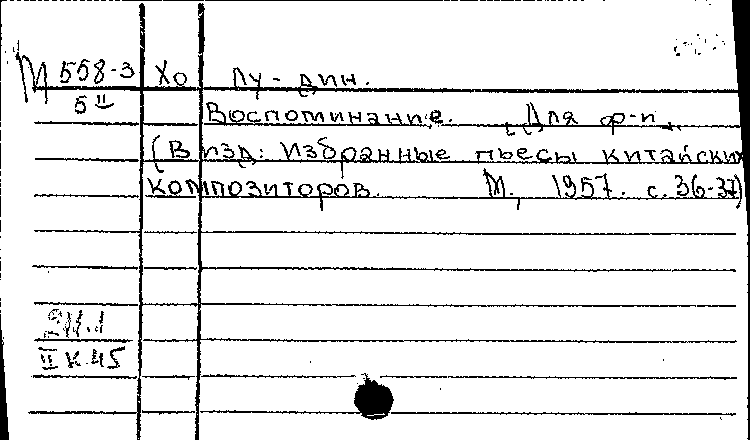 М 558-3 Хо Лу-дин.
5 II Воспоминание. [Для ф-п.
(В изд: Избранные пьесы китайских
композиторов. М., 1957. с. 36-37)
II К 45